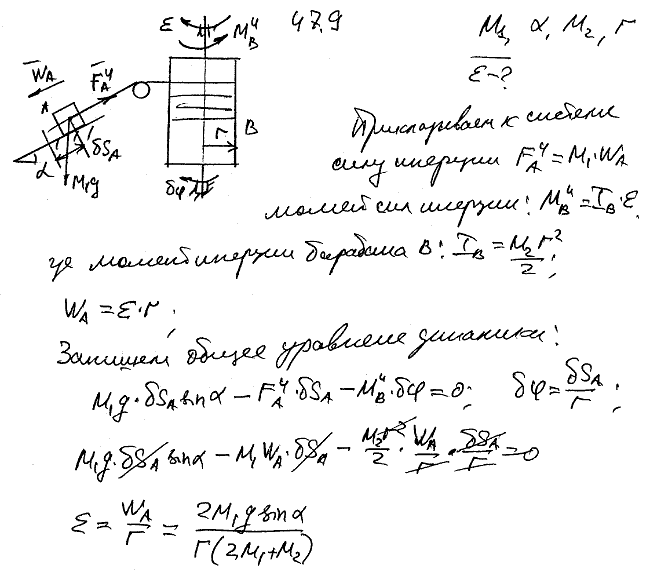 47.9
M₁, α, M₂, r
ε-?
ε M_B^и
W_A F_A^и
A
r B
δS_A
α M₁g δφ
Прикладываем к системе
силу инерции F_A^и = M₁·W_A
момент сил инерции: M_B^и = I_B·ε,
где момент инерции барабана B: I_B = M₂r²/2;
W_A = ε·r;
Запишем общее уравнение динамики:
M₁g·δS_A sinα − F_A^и·δS_A − M_B^и·δφ = 0; δφ = δS_A/r;
M₁g·δS_A sinα − M₁W_A·δS_A − M₂r²/2 · W_A/r · δS_A/r = 0
ε = W_A/r = 2M₁g sinα / r(2M₁+M₂)